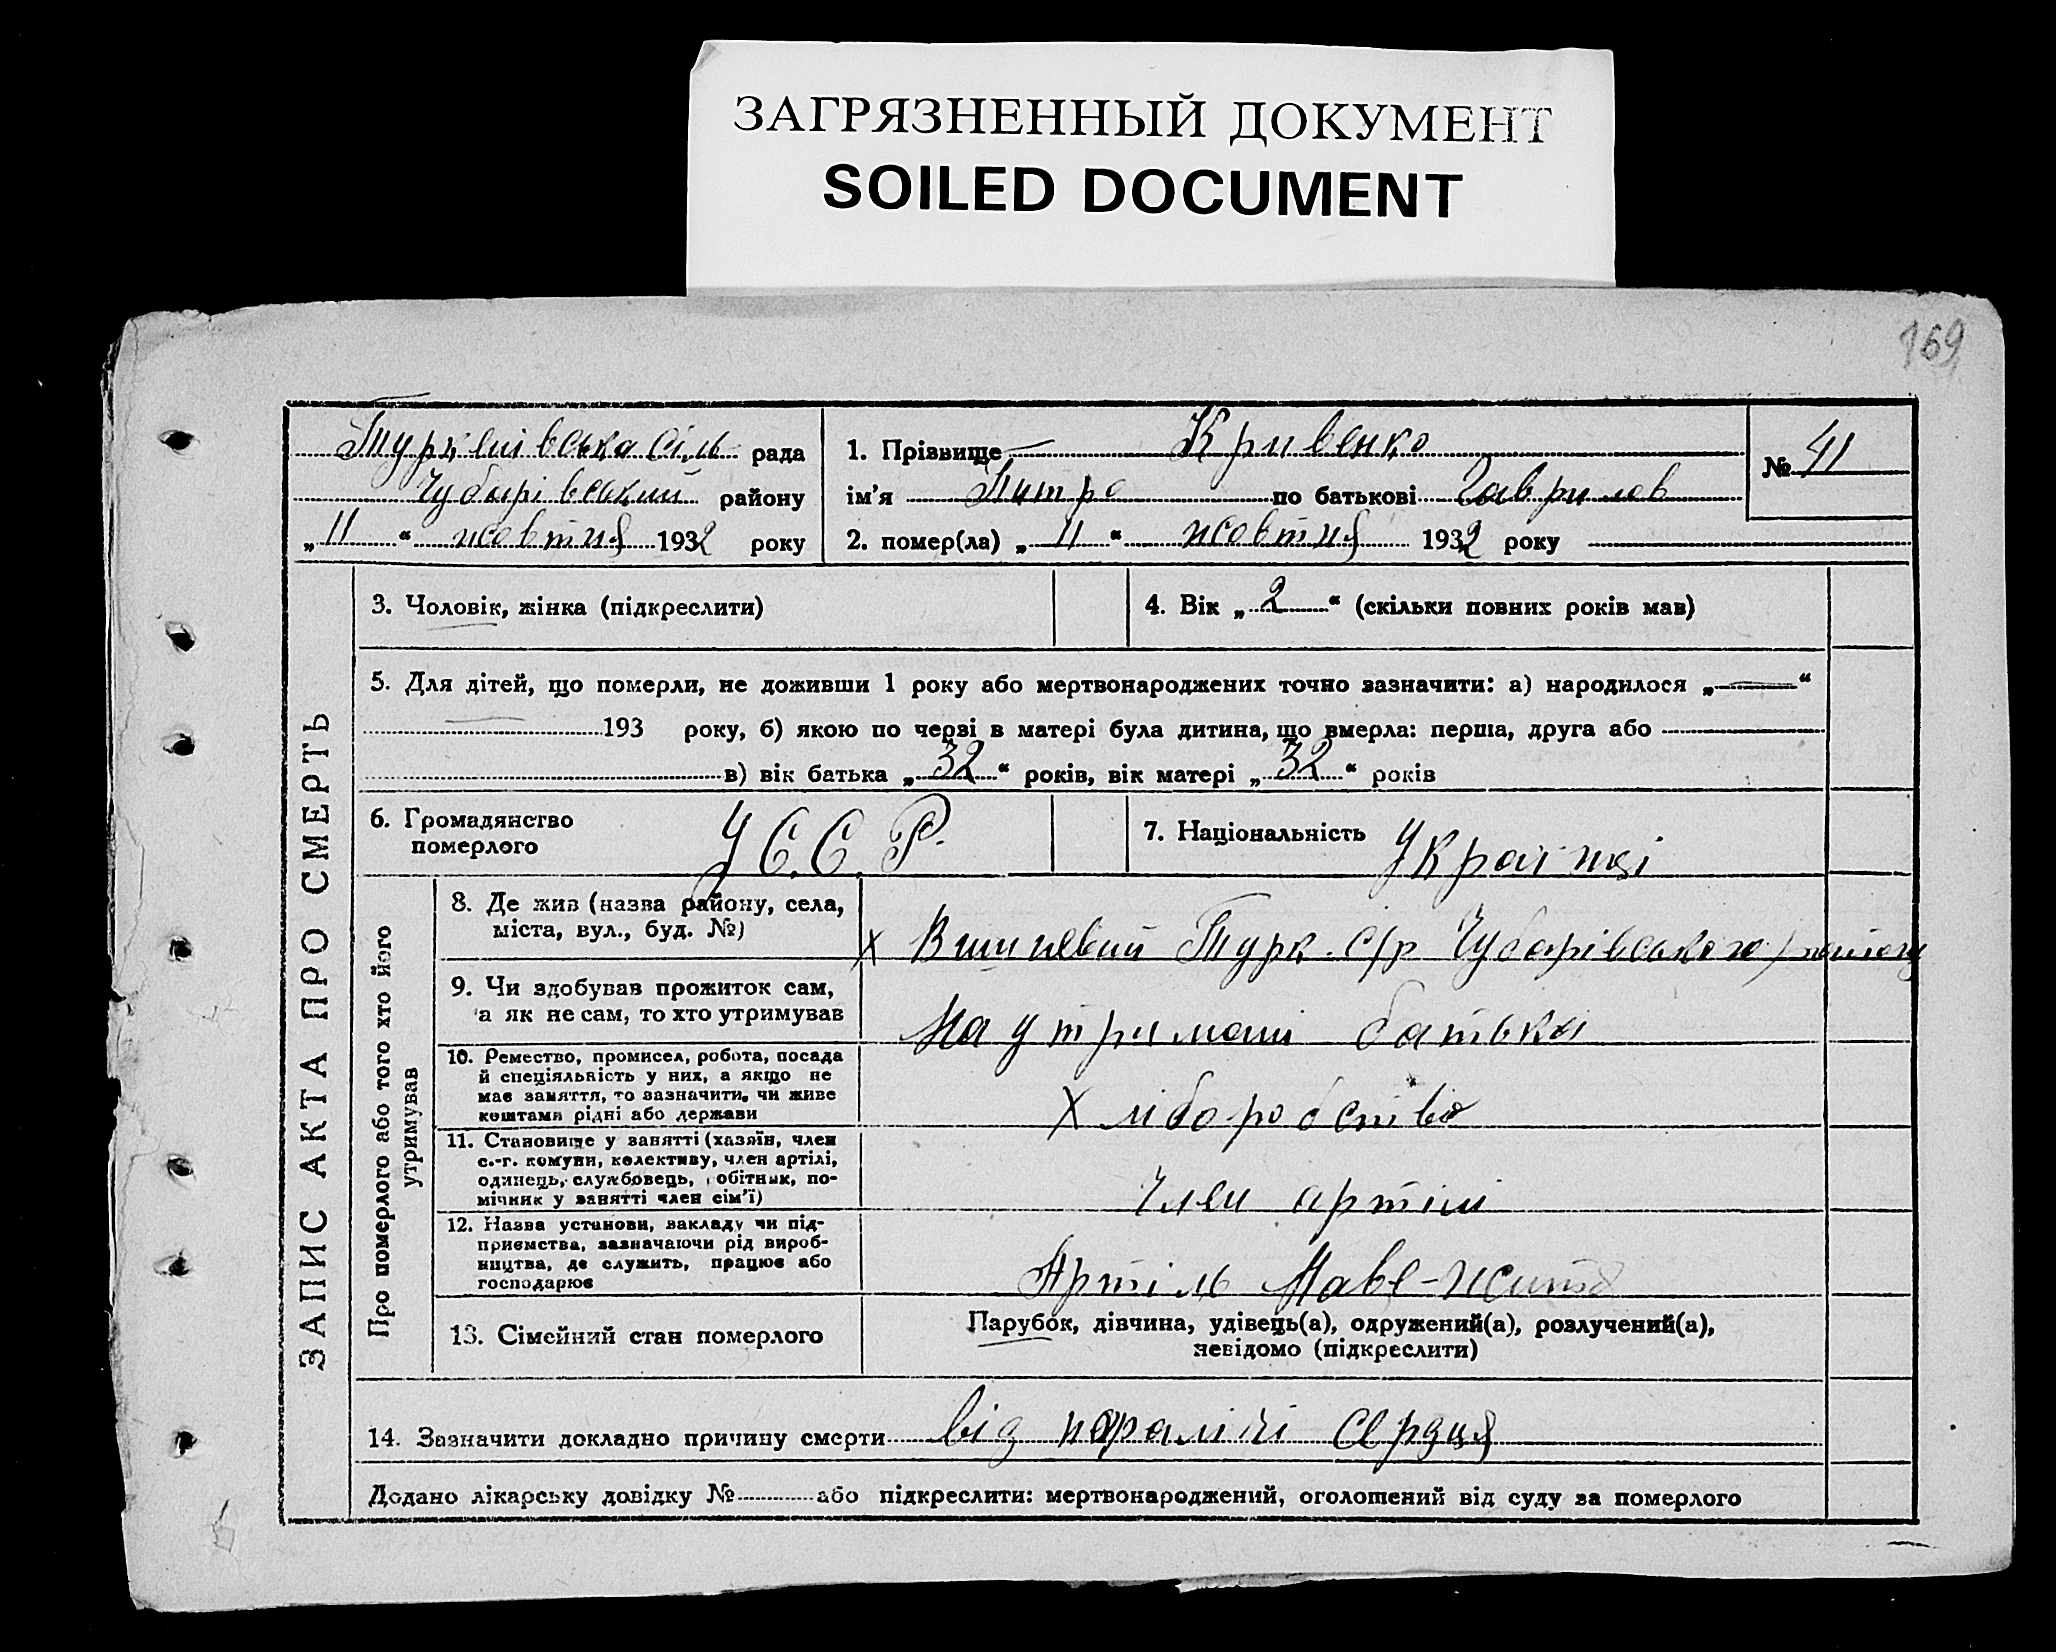 ЗАГРЯЗНЕННЫЙ ДОКУМЕНТ
SOILED DOCUMENT
169
сіль рада
Чубарівський району
„11“ жовтня 1932 року
1. Прізвище Кривенко
ім’я Питро по батькові Гаврилов
2. помер(ла) „11“ жовтня 1932 року
№ 41
ЗАПИС АКТА ПРО СМЕРТЬ
3. Чоловік, жінка (підкреслити)
4. Вік „2“ (скільки повних років мав)
5. Для дітей, що померли, не доживши 1 року або мертвонароджених точно зазначити: а) народилося „—“
193 року, б) якою по черві в матері була дитина, що вмерла: перша, друга або
в) вік батька „32“ років, вік матері „32“ років
6. Громадянство
померлого
У.С.С.Р.
7. Національність Україңці
Про померлого або того хто його
утримував
8. Де жив (назва району, села,
міста, вул., буд. №)
х Вишневий Турк. с/р Чубарівського району
9. Чи здобував прожиток сам,
а як не сам, то хто утримував
На утримані батька
10. Ремество, промисел, робота, посада
й спеціяльність у них, а якщо не
має заняття, то зазначити, чи живе
коштами рідні або держави
Хліборобство
11. Становище у занятті (хазяїн, член
с.-г. комуни, колективу, член артілі,
одинець, службовець, обітник, по-
мічник у занятті член сім’ї)
Член артілі
12. Назва установи, закладу чи під-
приємства, зазначаючи рід вироб-
ництва, де служить, працює або
господарює
Артіль Наве-життя
13. Сімейний стан померлого
Парубок, дівчина, удівець(а), одружений(а), розлучений(а),
невідомо (підкреслити)
14. Зазначити докладно причину смерти від паралічі сердця
Додано лікарську довідку № або підкреслити: мертвонароджений, оголошений від суду за померлого